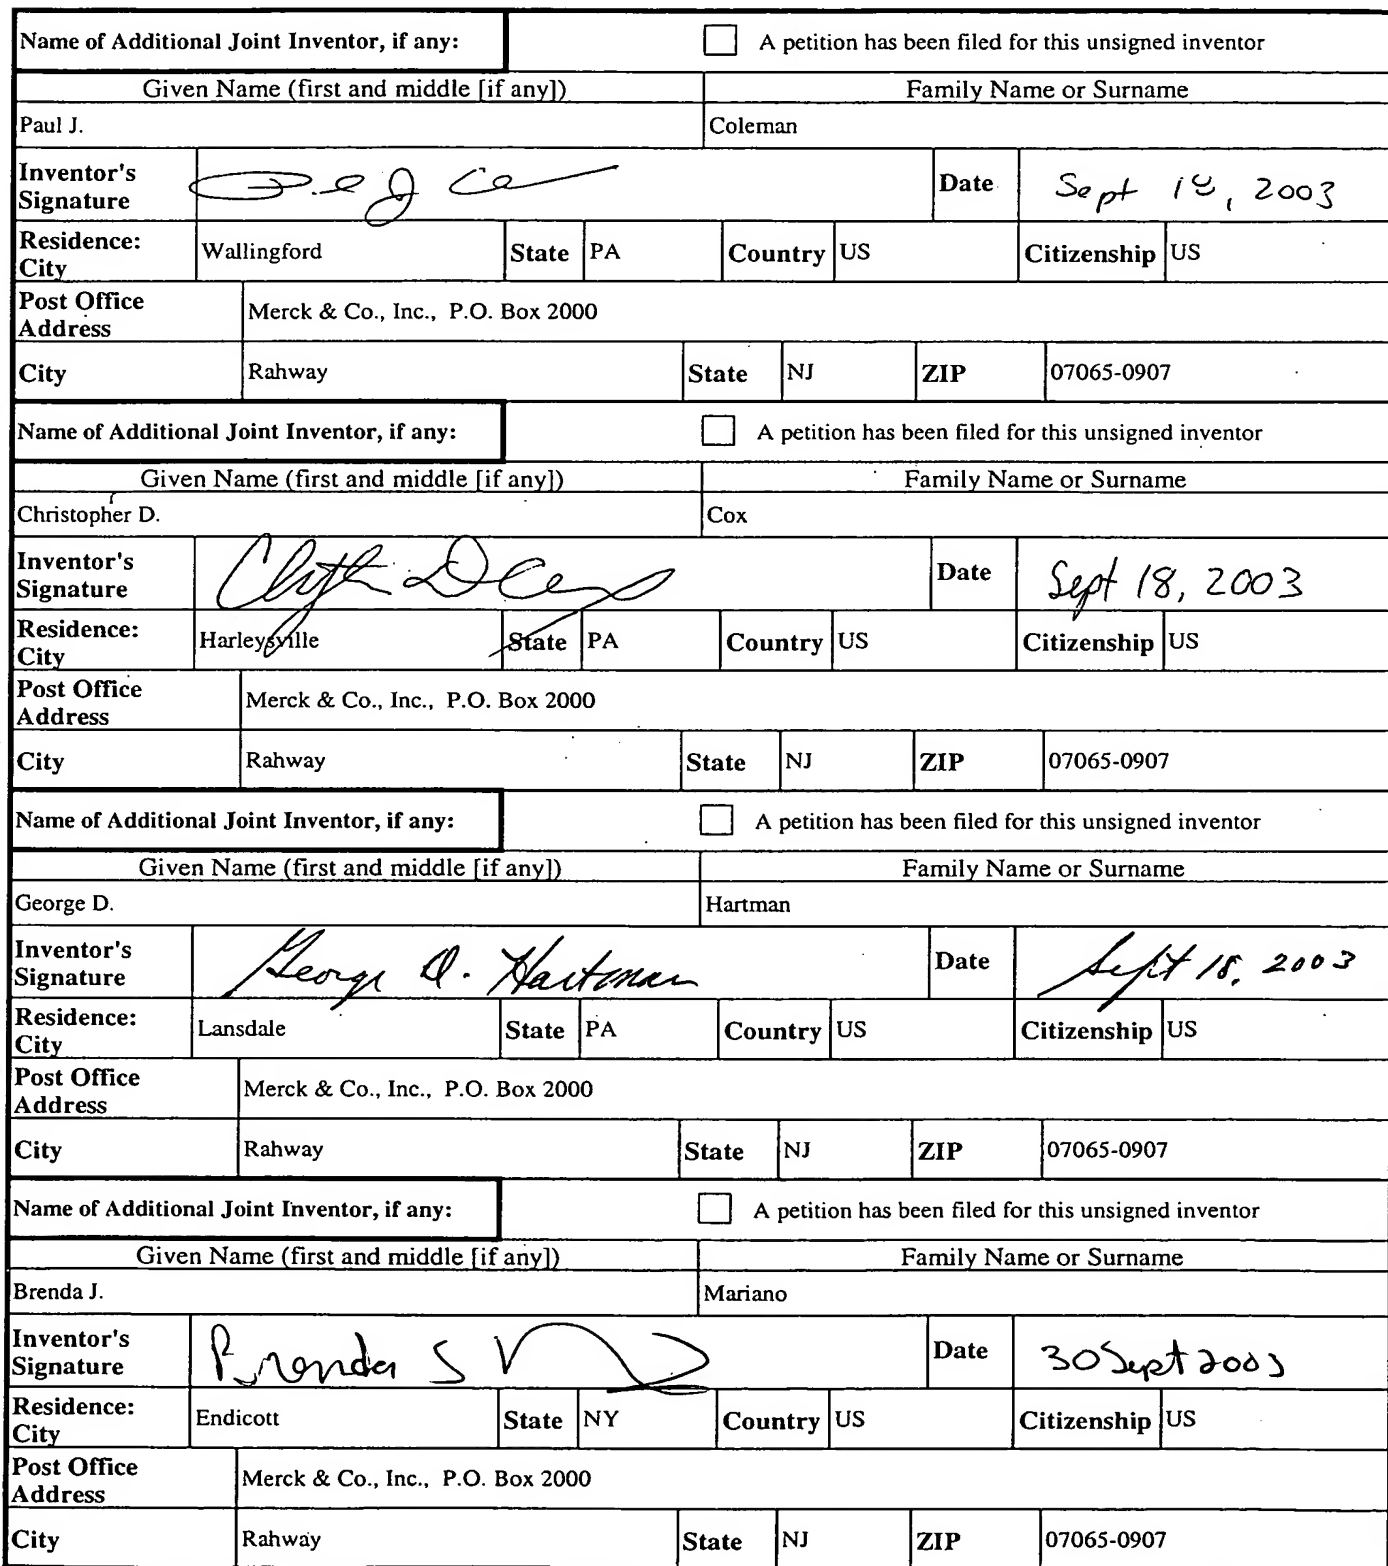 Name of Additional Joint Inventor, if any: A petition has been filed for this unsigned inventor
Given Name (first and middle [if any]) Family Name or Surname
Paul J. Coleman
Inventor's Signature Date Sept 18, 2003
Residence: City Wallingford State PA Country US Citizenship US
Post Office Address Merck & Co., Inc., P.O. Box 2000
City Rahway State NJ ZIP 07065-0907
Name of Additional Joint Inventor, if any: A petition has been filed for this unsigned inventor
Given Name (first and middle [if any]) Family Name or Surname
Christopher D. Cox
Inventor's Signature Date Sept 18, 2003
Residence: City Harleysville State PA Country US Citizenship US
Post Office Address Merck & Co., Inc., P.O. Box 2000
City Rahway State NJ ZIP 07065-0907
Name of Additional Joint Inventor, if any: A petition has been filed for this unsigned inventor
Given Name (first and middle [if any]) Family Name or Surname
George D. Hartman
Inventor's Signature George D. Hartman Date Sept 18, 2003
Residence: City Lansdale State PA Country US Citizenship US
Post Office Address Merck & Co., Inc., P.O. Box 2000
City Rahway State NJ ZIP 07065-0907
Name of Additional Joint Inventor, if any: A petition has been filed for this unsigned inventor
Given Name (first and middle [if any]) Family Name or Surname
Brenda J. Mariano
Inventor's Signature Brenda J Date 30 Sept 2003
Residence: City Endicott State NY Country US Citizenship US
Post Office Address Merck & Co., Inc., P.O. Box 2000
City Rahway State NJ ZIP 07065-0907